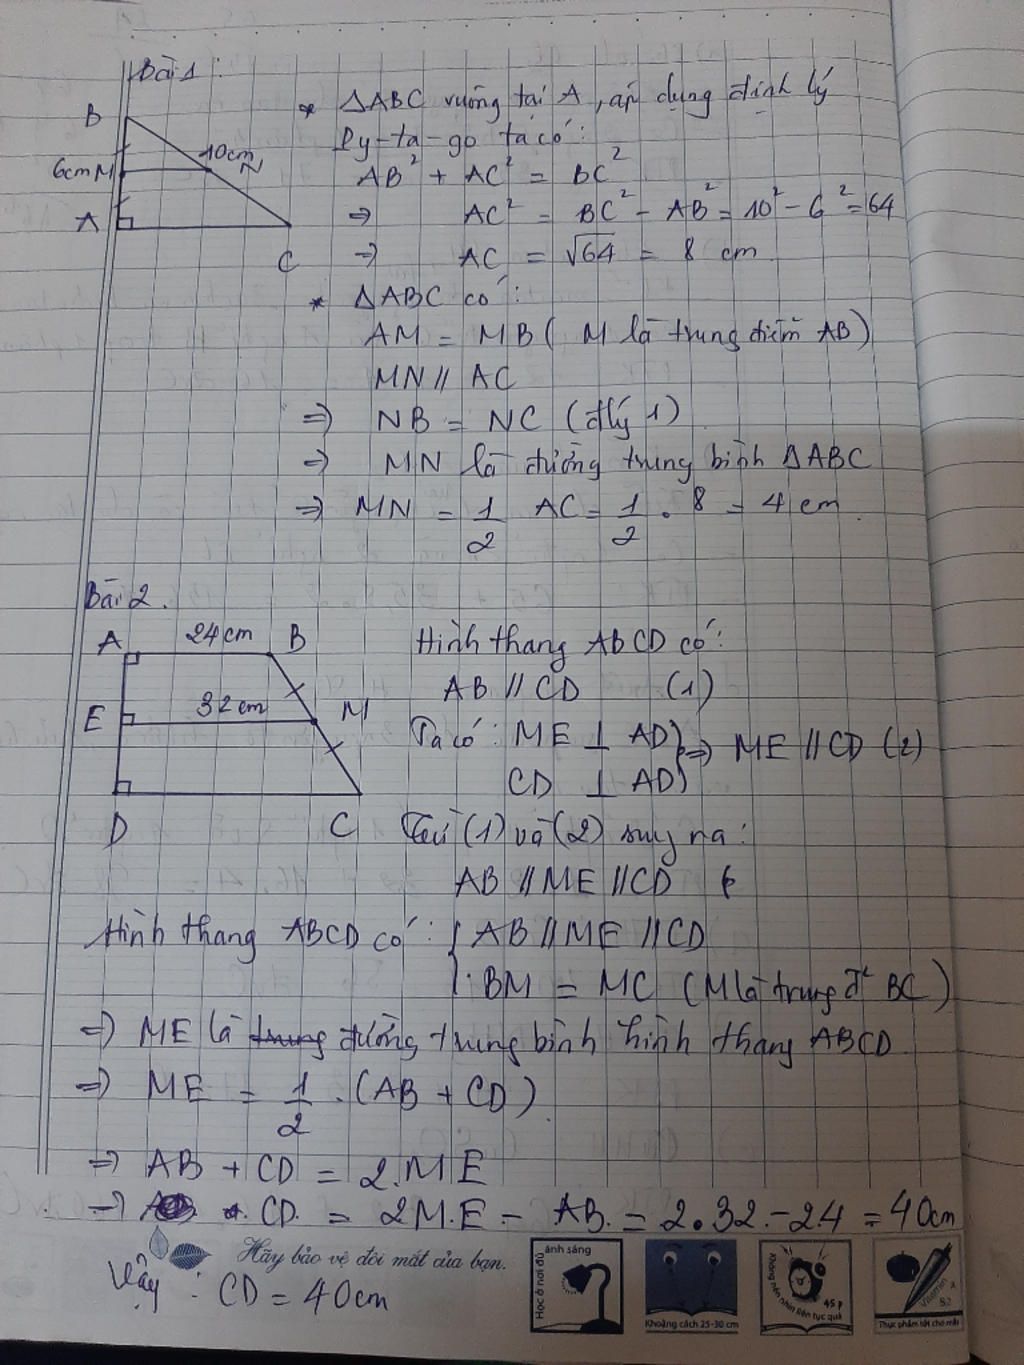 Bài 1:
B
6cm M
10cm
N
A
C
* ΔABC vuông tại A, áp dụng định lý
Py-ta-go ta có:
AB² + AC² = BC²
⇒ AC² = BC² - AB² = 10² - 6² = 64
⇒ AC = √64 = 8 cm
* ΔABC có:
AM = MB ( M là trung điểm AB)
MN // AC
⇒ NB = NC (đlý 1)
⇒ MN là đường trung bình ΔABC
⇒ MN = 1/2 AC = 1/2 . 8 = 4 cm.
Bài 2.
A 24cm B
E 32cm M
D C
Hình thang ABCD có:
AB // CD (1)
Ta có: ME ⊥ AD } ⇒ ME // CD (2)
CD ⊥ AD
Từ (1) và (2) suy ra:
AB // ME // CD
Hình thang ABCD có: { AB // ME // CD
BM = MC (M là trung đ² BC)
⇒ ME là đường trung bình hình thang ABCD
⇒ ME = 1/2 . (AB + CD)
⇒ AB + CD = 2.ME
⇒ CD = 2M.E - AB = 2.32 - 24 = 40cm
Vậy : CD = 40cm
Hãy bảo vệ đôi mắt của bạn.
Học ở nơi đủ ánh sáng
Khoảng cách 25-30 cm
Không nên nhìn liên tục quá 45 p
Vitamin A B2
Thực phẩm tốt cho mắt